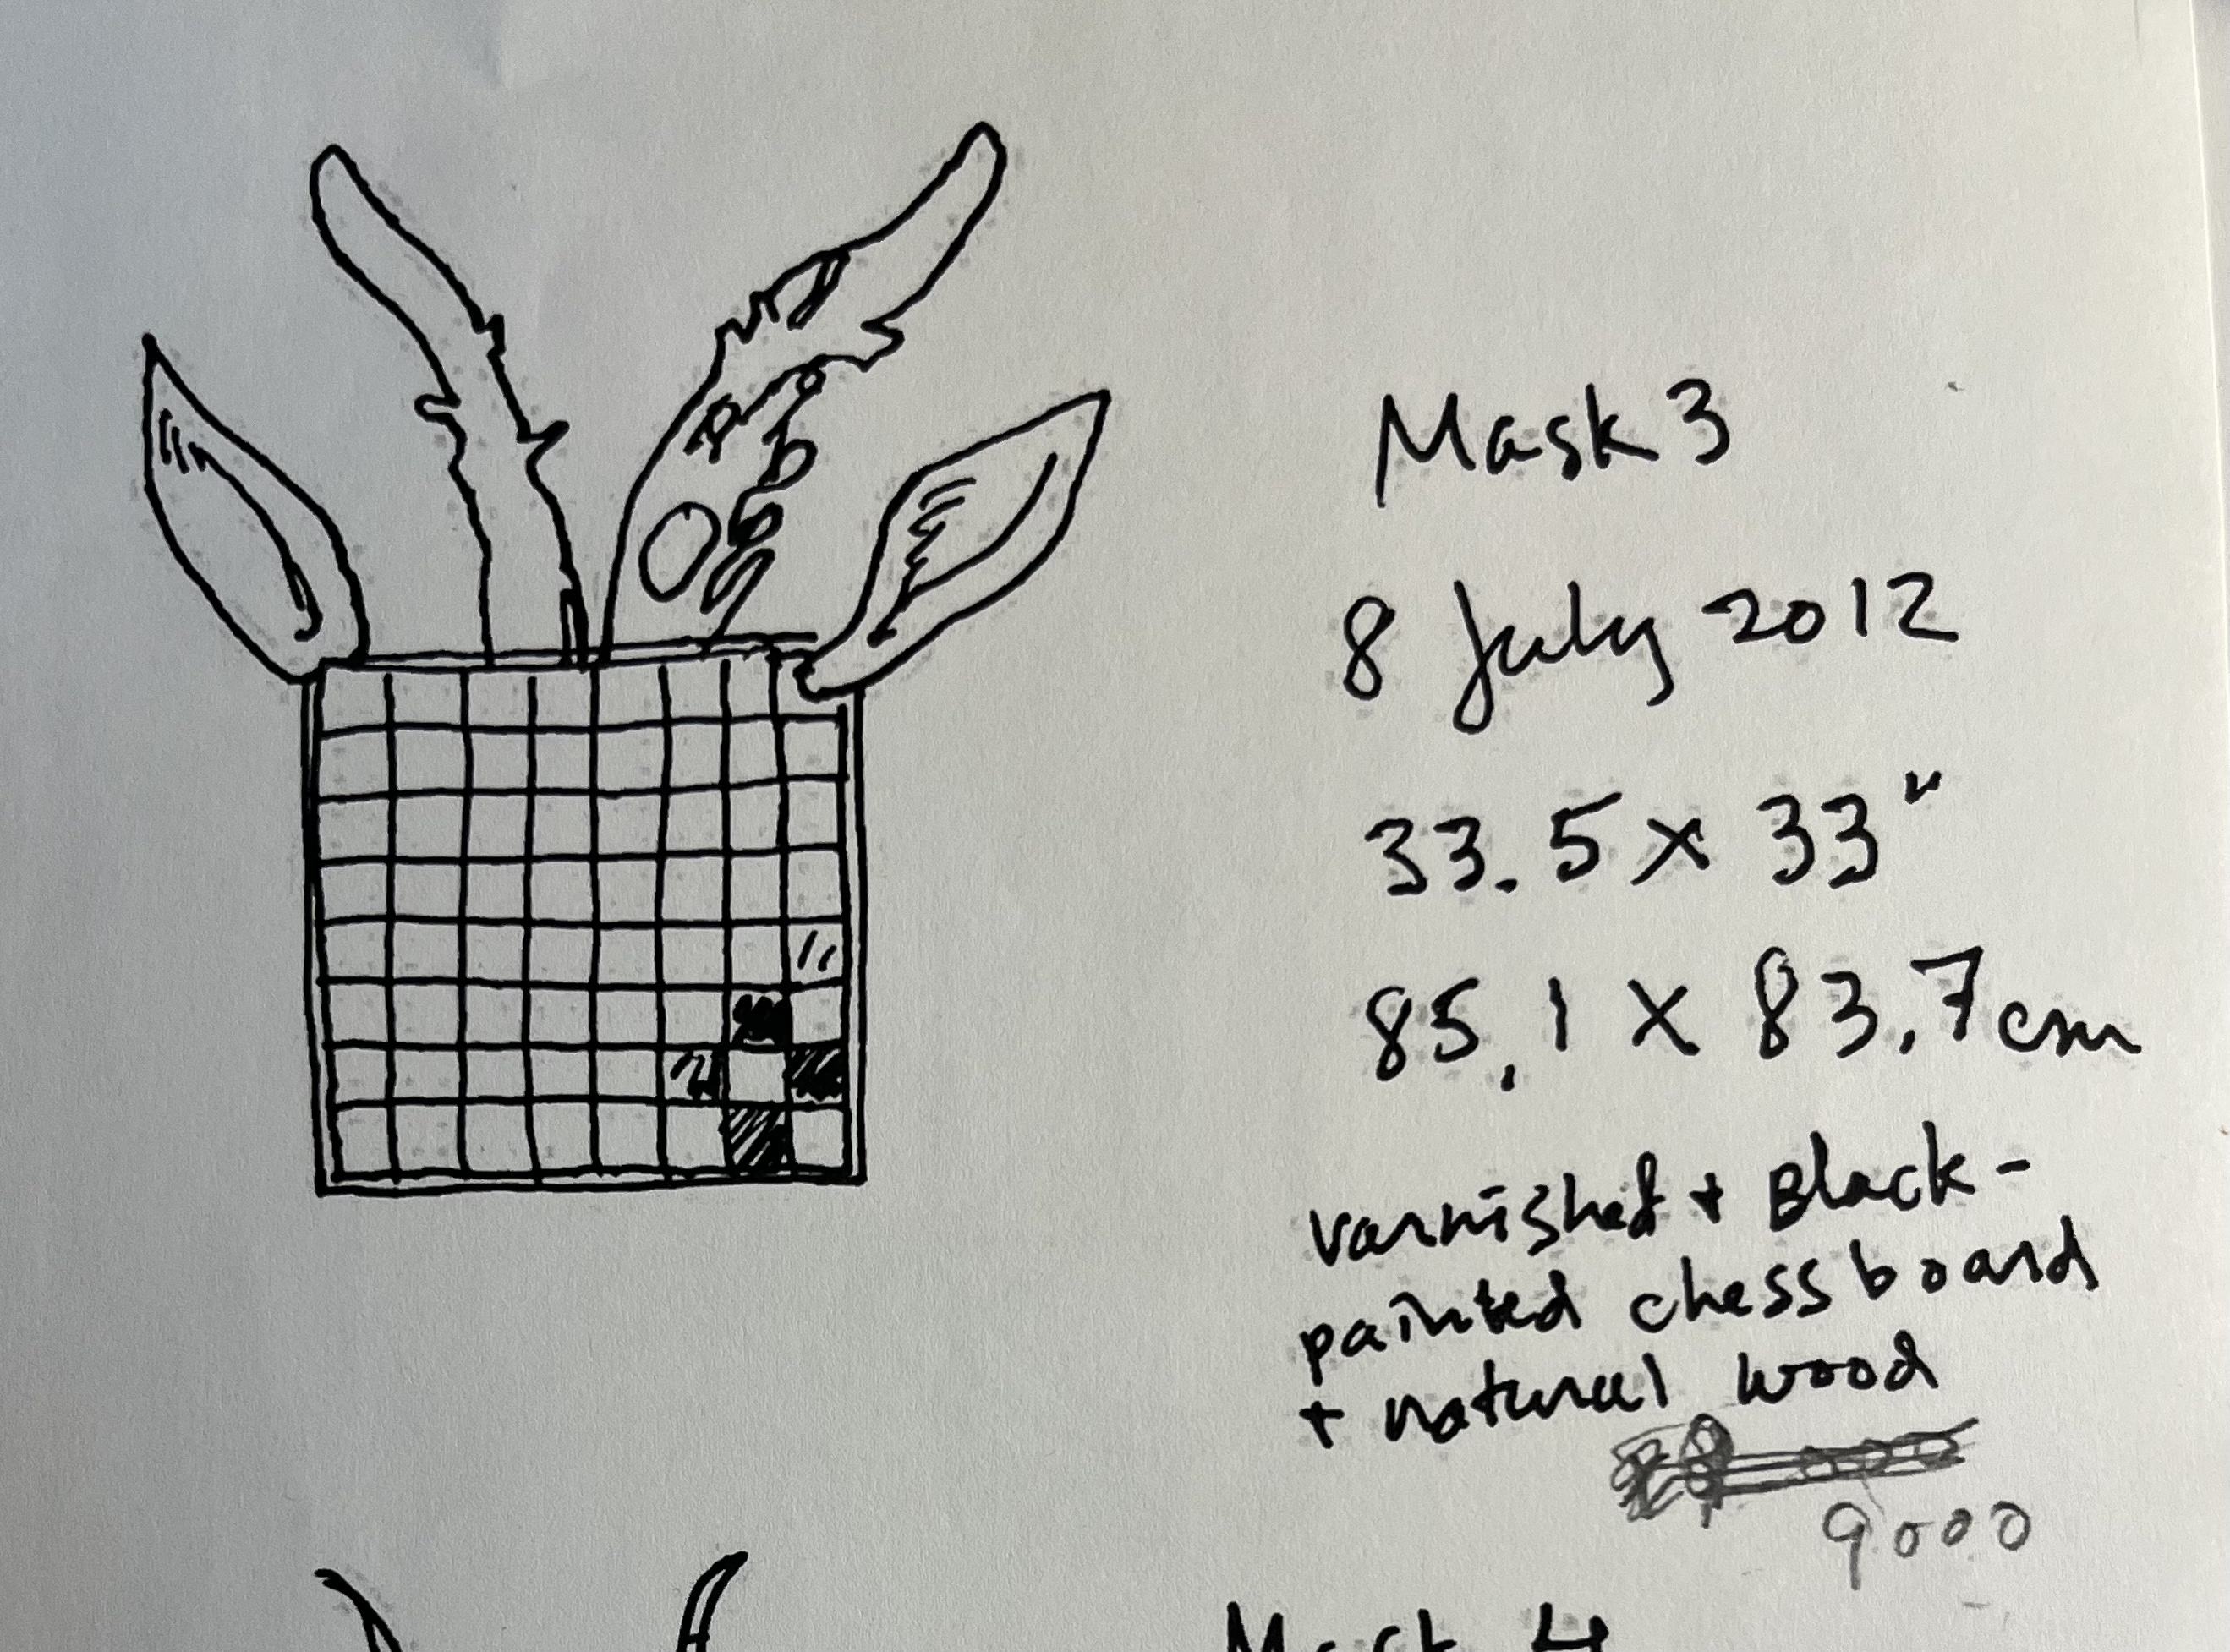 Mask 3
8 July 2012
33.5 x 33"
85.1 x 83.7cm
varnished + Black-
painted chess board
+ natural wood
9000
Mask 4